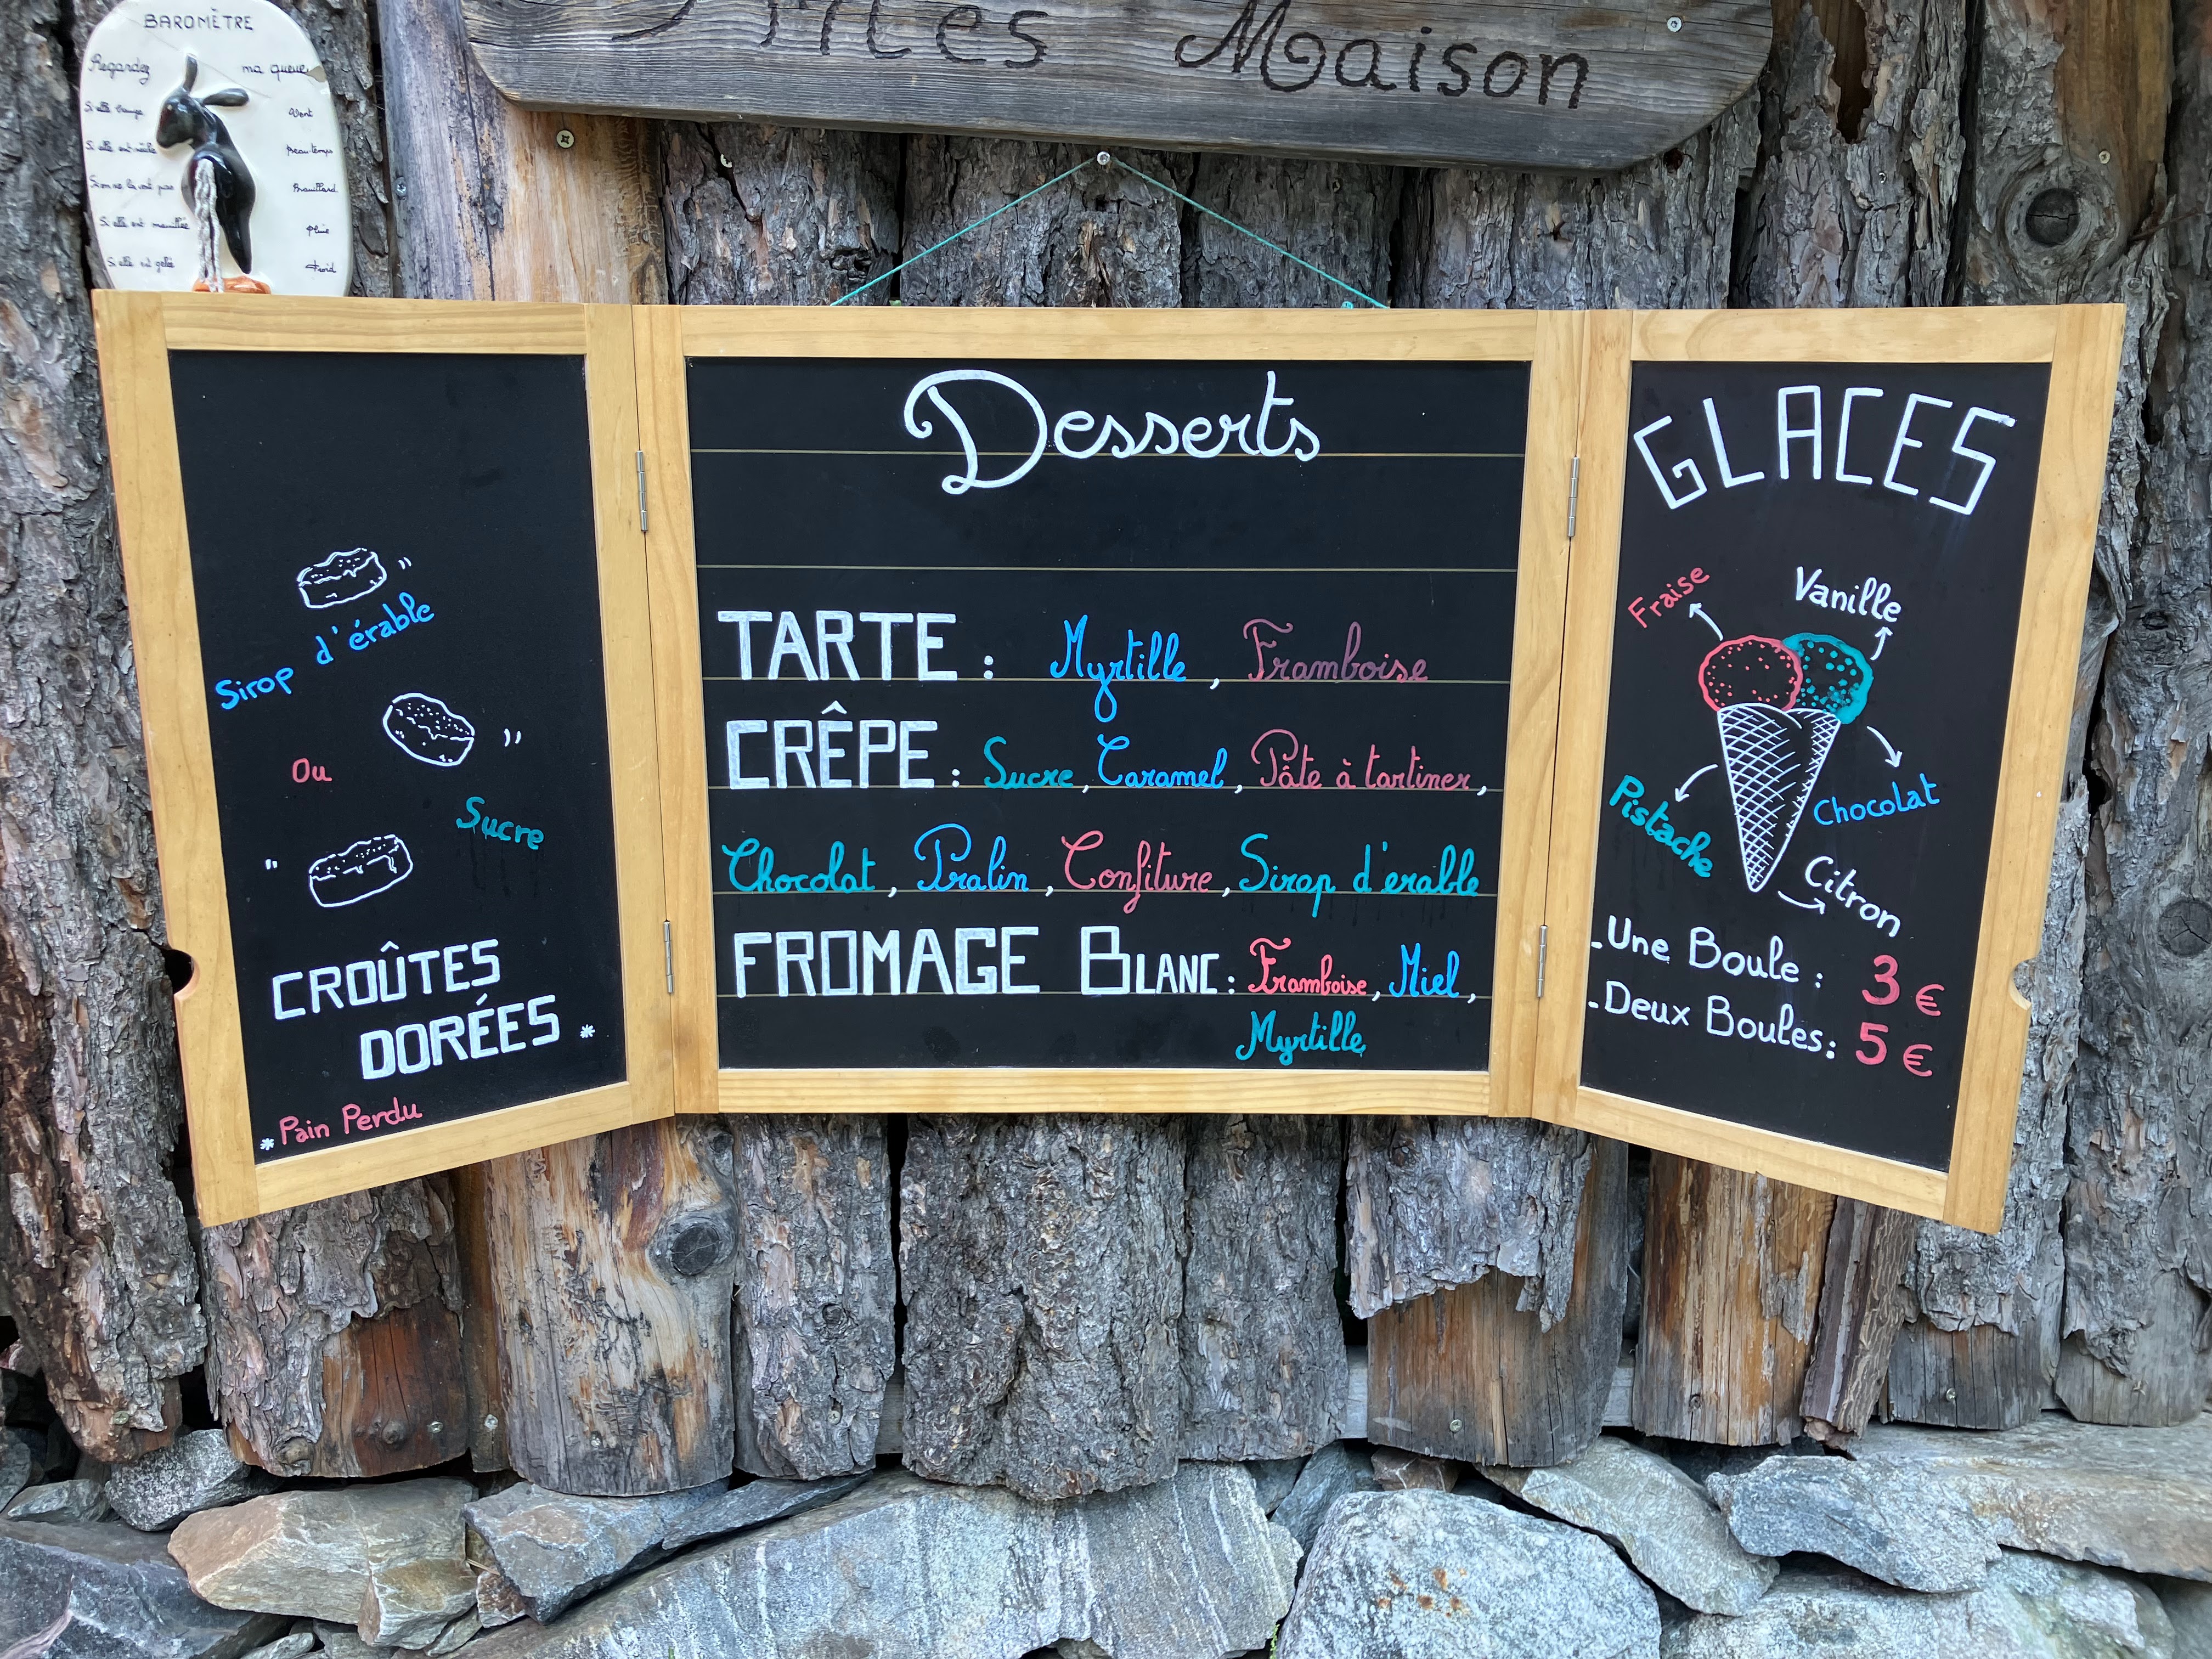 BAROMÈTRE
Regardez ma queue
Si elle bouge Vent
Si elle est sèche Beau temps
Si on ne la voit pas Brouillard
Si elle est mouillée Pluie
Si elle est gelée Froid
Maison
Sirop d'érable
Ou
Sucre
CROÛTES
DORÉES *
* Pain Perdu
Desserts
TARTE : Myrtille, Framboise
CRÊPE : Sucre, Caramel, Pâte à tartiner,
Chocolat, Pralin, Confiture, Sirop d'erable
FROMAGE BLANC : Framboise, Miel,
Myrtille
GLACES
Fraise
Vanille
Pistache
Chocolat
Citron
-Une Boule : 3 €
-Deux Boules: 5 €